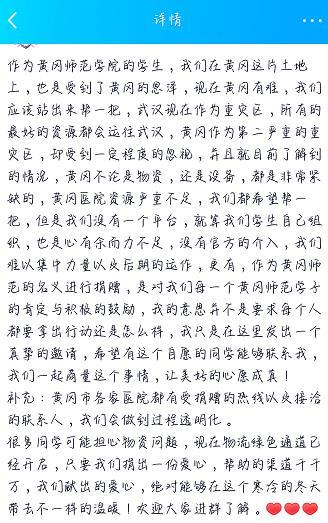 详情
作为黄冈师范学院的学生，我们在黄冈这片土地
上，也是受到了黄冈的恩泽，现在黄冈有难，我们
应该站出来帮一把，武汉现在作为重灾区，所有的
最好的资源都会运往武汉，黄冈作为第二严重的重
灾区，却受到一定程度的忽视，并且就目前了解到
的情况，黄冈不论是物资，还是设备，都是非常紧
缺的，黄冈医院资源严重不足，我们都希望帮一
把，但是我们没有一个平台，就算我们学生自己组
织，也是心有余而力不足，没有官方的介入，我们
难以集中力量以及后期的运作，更有，作为黄冈师
范的名义进行捐赠，是对我们每一个黄冈师范学子
的肯定与积极的鼓励，我的意思并不是要求每个人
都要拿出行动还是怎么样，我只是在这里发出一个
真挚的邀请，希望有这个自愿的同学能够联系我，
我们一起商量这个事情，让美好的心愿成真！
补充：黄冈市各家医院都有受捐赠的热线以及接洽
的联系人，我们会做到过程透明化。
很多同学可能担心物资问题，现在物流绿色通道已
经开启，只要我们捐出一份爱心，帮助的渠道千千
万，我们献出的爱心，绝对能够在这个寒冷的冬天
带去不一样的温暖！欢迎大家进群了解。❤❤❤